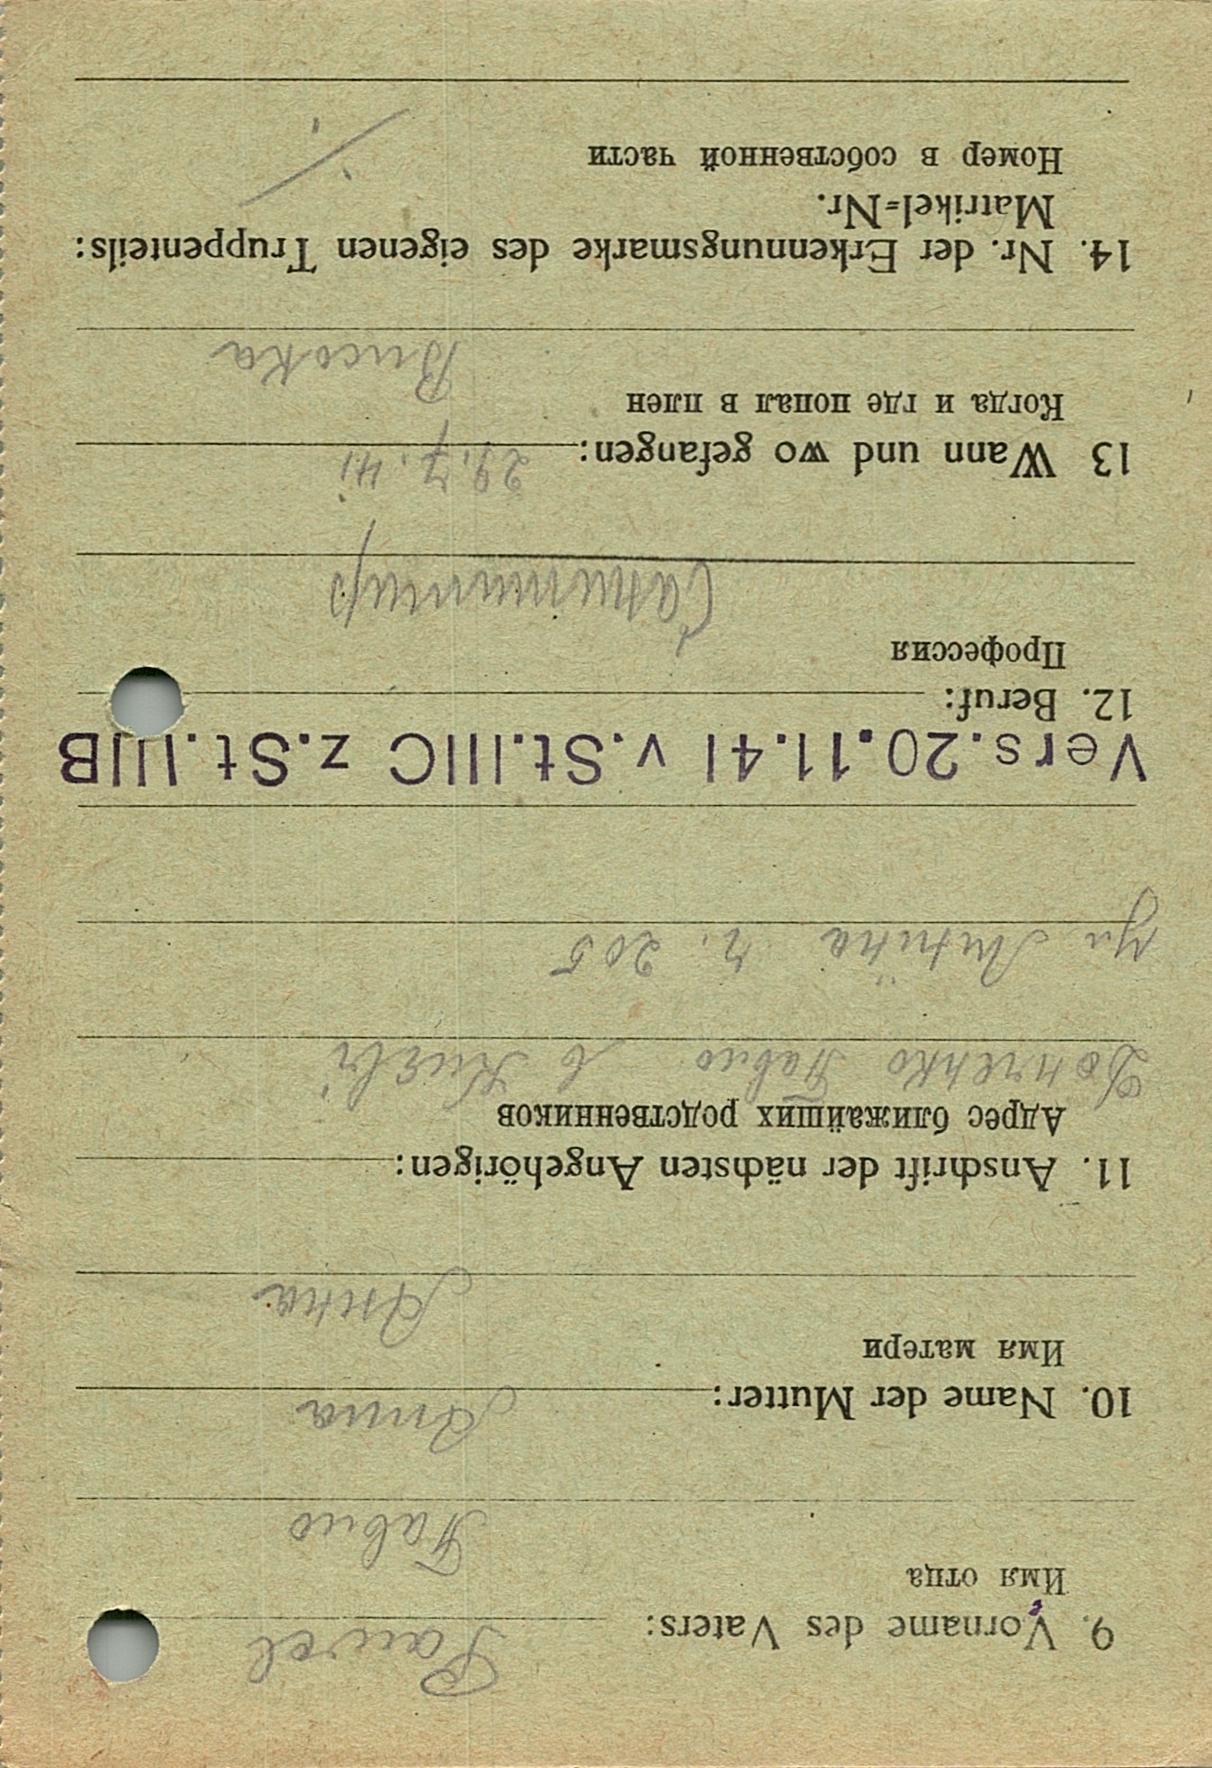 9. Vorname des Vaters: Pawel
Имя отца
Павло
10. Name der Mutter: Anna
Имя матери
Анна
11. Anschrift der nächsten Angehörigen:
Адрес ближайших родственников
Донченко Павло в Києві
ул Леніна ч. 205
Vers.20.11.41 v.St.IIIC z.St.IIIB
12. Beruf:
Профессия
13 Wann und wo gefangen: 29.7.41
Когда и где попал в плен
Висока
14. Nr. der Erkennungsmarke des eigenen Truppenteils:
Matrikel-Nr.
Номер в собственной части